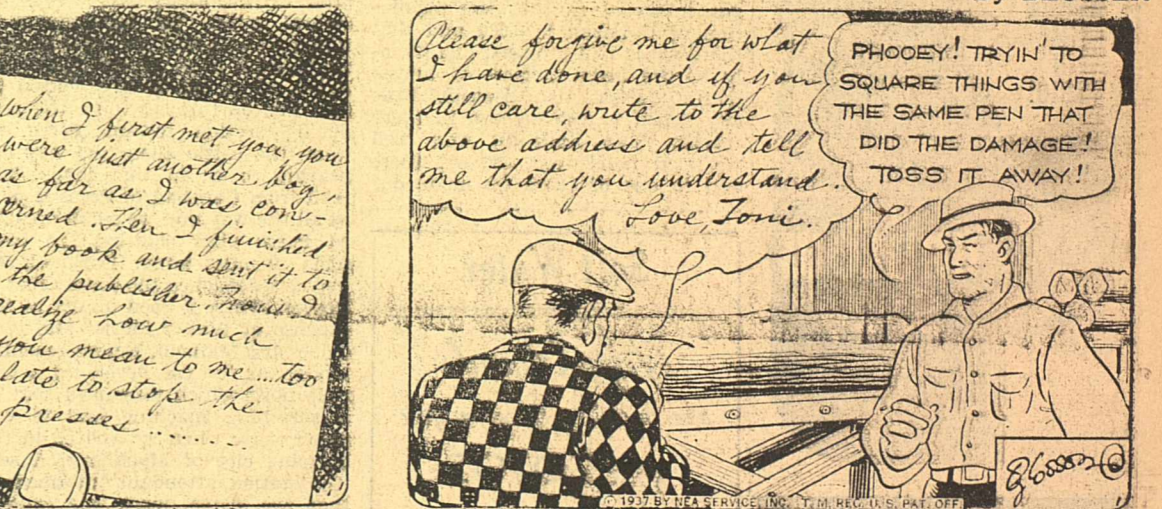 when I first met you you
were just another boy,
as far as I was con-
erned. Then I finished
my book and sent it to
the publisher. Now I
realize how much
you mean to me...too
late to stop the
presses.......
Please forgive me for what
I have done, and if you
still care, write to the
above address and tell
me that you understand.
Love, Toni.
PHOOEY! TRYIN' TO
SQUARE THINGS WITH
THE SAME PEN THAT
DID THE DAMAGE!
TOSS IT AWAY!
© 1937 BY NEA SERVICE, INC. T. M. REG. U. S. PAT. OFF.